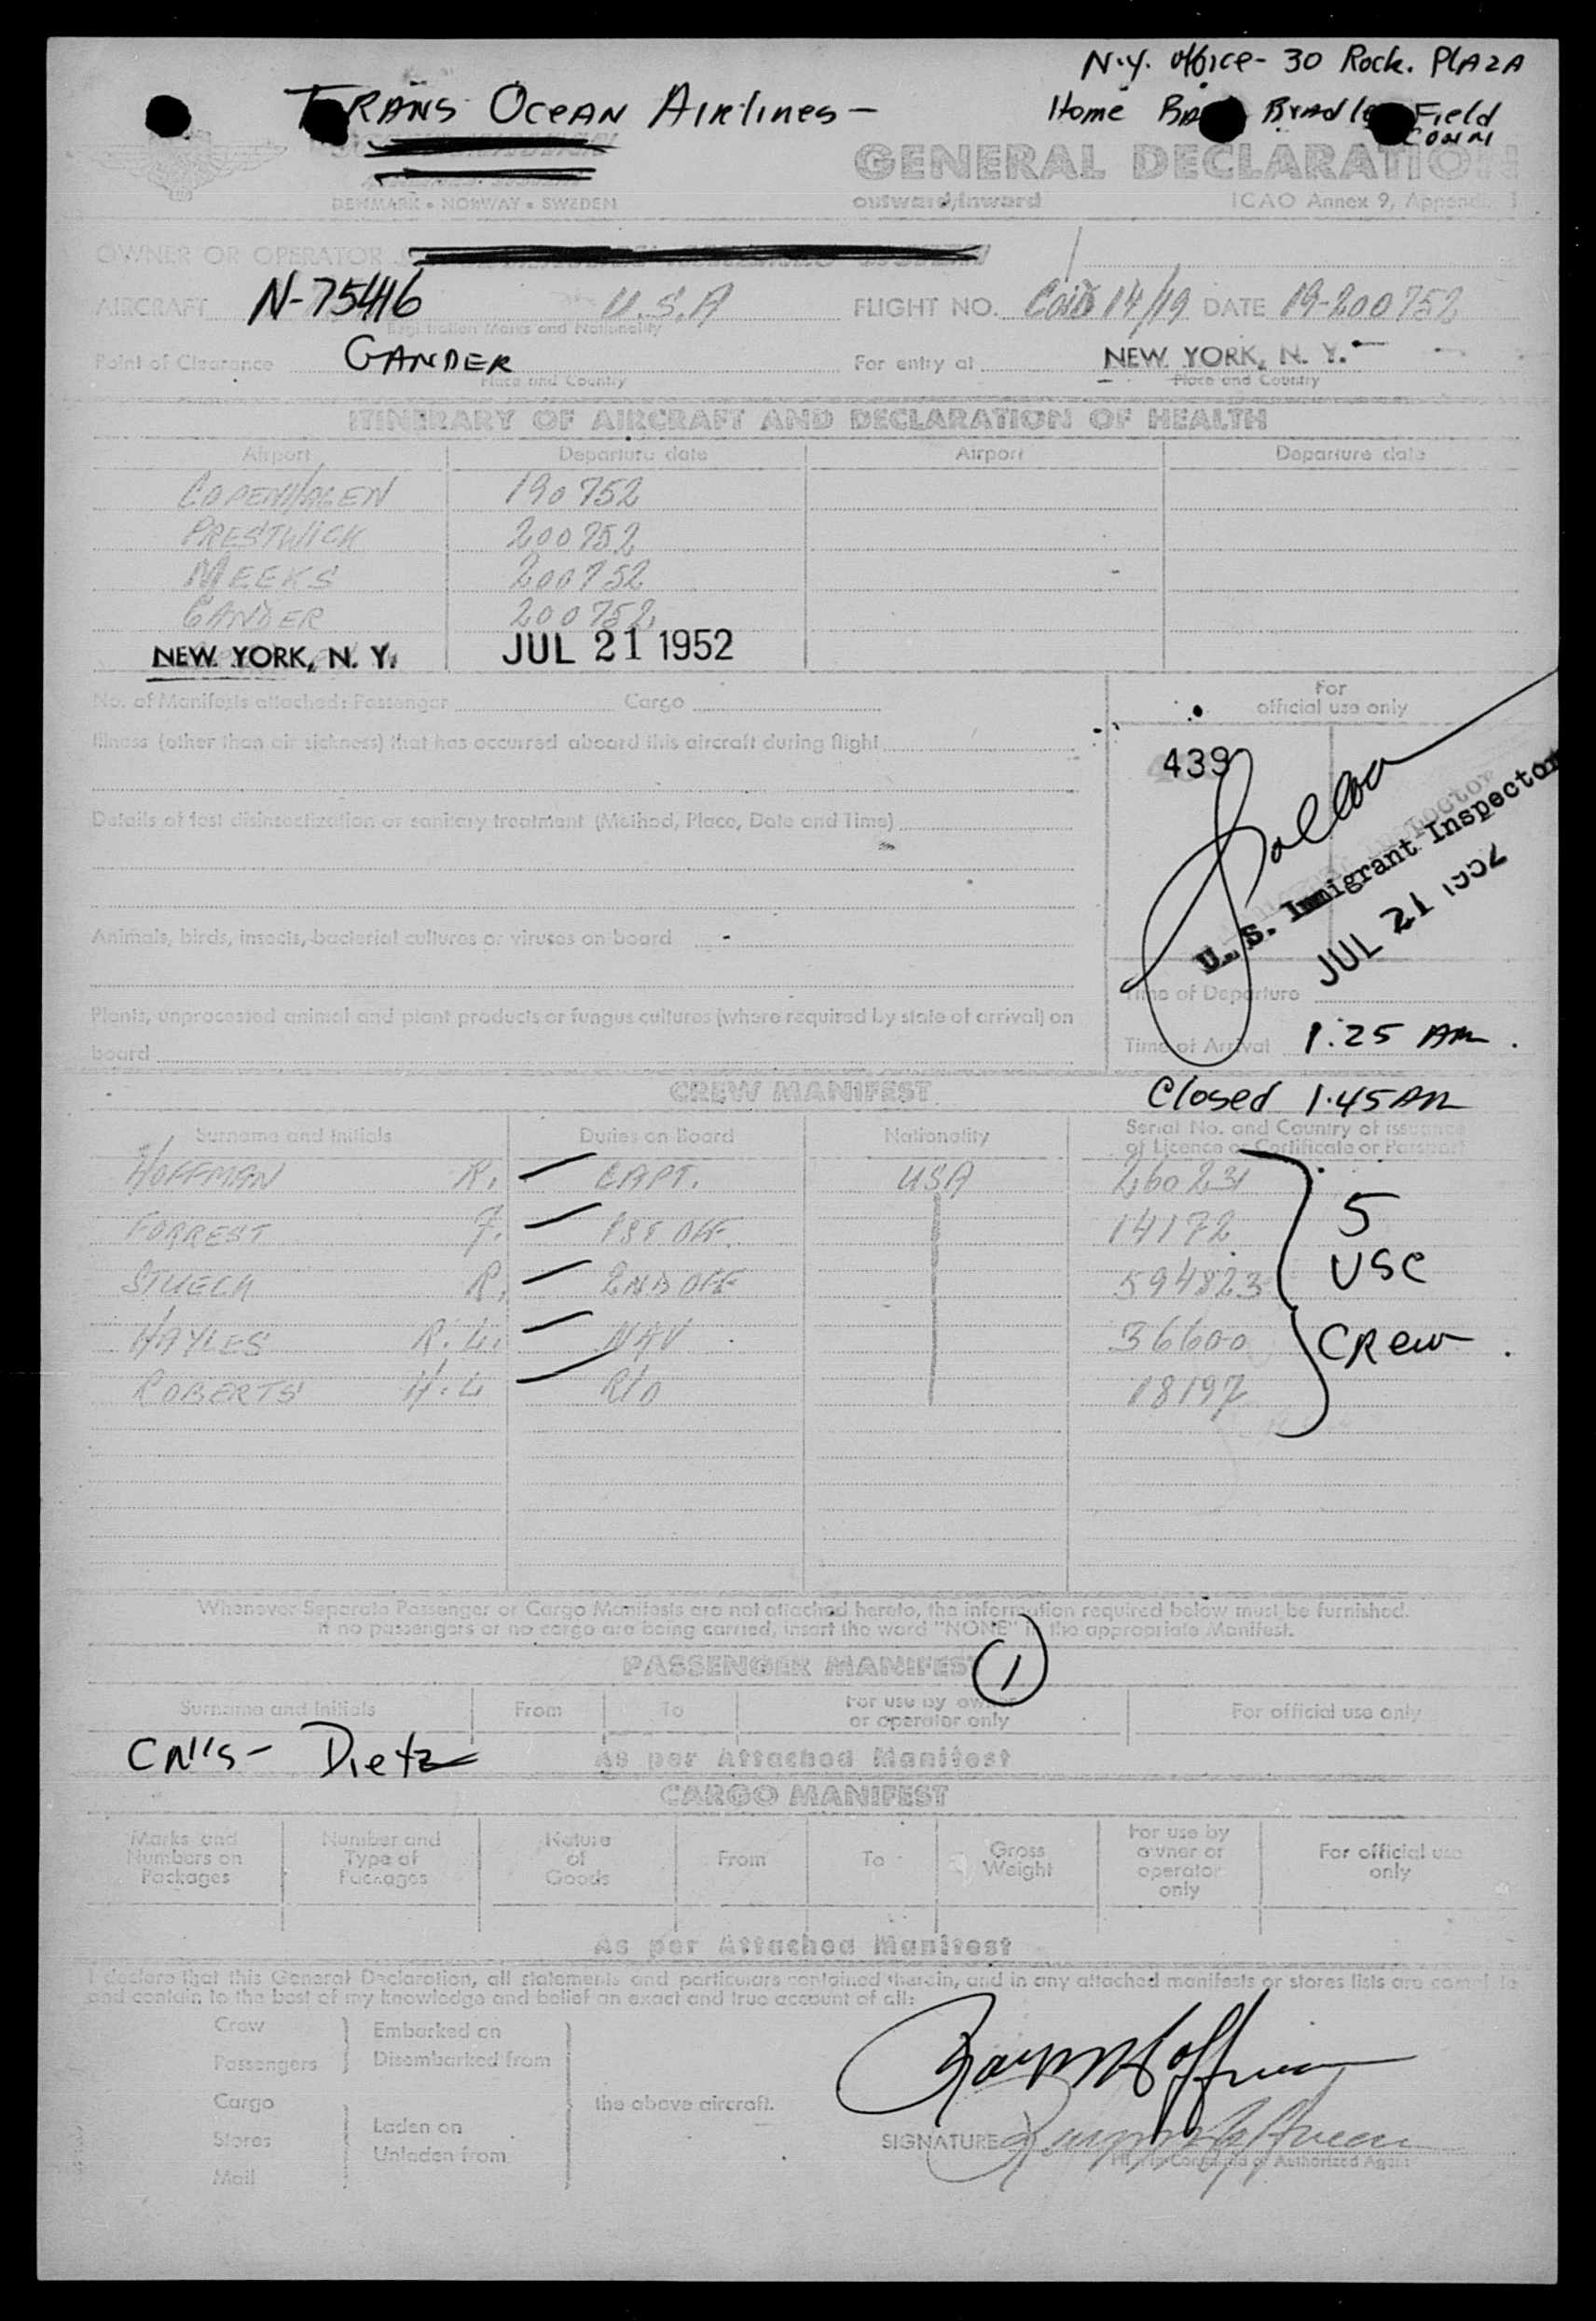 N.Y. office - 30 Rock. PLAZA
TRANS OCEAN Airlines -
Home Bradley Field
CONN
GENERAL DECLARATION
DENMARK • NORWAY • SWEDEN
outward/inward ICAO Annex 9, Appendix 1
OWNER OR OPERATOR
AIRCRAFT N-75416 U.S.A FLIGHT NO. 14/19 DATE 19-200752
Registration Marks and Nationality
Point of Clearance GANDER For entry at NEW YORK, N. Y.
Place and Country Place and Country
ITINERARY OF AIRCRAFT AND DECLARATION OF HEALTH
Airport Departure date Airport Departure date
COPENHAGEN 190752
PRESTWICK 200752
MEEKS 200752
GANDER 200752
NEW YORK, N. Y. JUL 21 1952
No. of Manifests attached: Passenger Cargo
For
official use only
Illness (other than air sickness) that has occurred aboard this aircraft during flight
439
Details of last disinsectization or sanitary treatment (Method, Place, Date and Time)
U. S. Immigrant Inspector
JUL 21 1952
Animals, birds, insects, bacterial cultures or viruses on board -
Time of Departure
Plants, unprocessed animal and plant products or fungus cultures (where required by state of arrival) on
board
Time of Arrival 1:25 AM.
CREW MANIFEST
Closed 1:45 AM
Surname and Initials Duties on Board Nationality Serial No. and Country of issuance
of Licence or Certificate or Passport
HOFFMAN R. CAPT. USA 26023
FORREST F. 1ST OFF. 14172
R. 2ND OFF 594823
HAYLES R. L. NAV 36600
ROBERTS H. L R/O 18197
5
USC
CRew.
Whenever Separate Passenger or Cargo Manifests are not attached hereto, the information required below must be furnished.
If no passengers or no cargo are being carried, insert the word "NONE" in the appropriate Manifest.
PASSENGER MANIFEST 1
Surname and Initials From To For use by owner
or operator only For official use only
Dietz
As per Attached Manifest
CARGO MANIFEST
Marks and
Numbers on
Packages
Number and
Type of
Packages
Nature
of
Goods
From
To
Gross
Weight
For use by
owner or
operator
only
For official use
only
As per Attached Manifest
I declare that this General Declaration, all statements and particulars contained therein, and in any attached manifests or stores lists are complete
and contain to the best of my knowledge and belief an exact and true account of all:
Crew
Passengers
Embarked on
Disembarked from
Cargo
Stores
Mail
Laden on
Unladen from
the above aircraft.
SIGNATURE
Pilot in Command or Authorized Agent